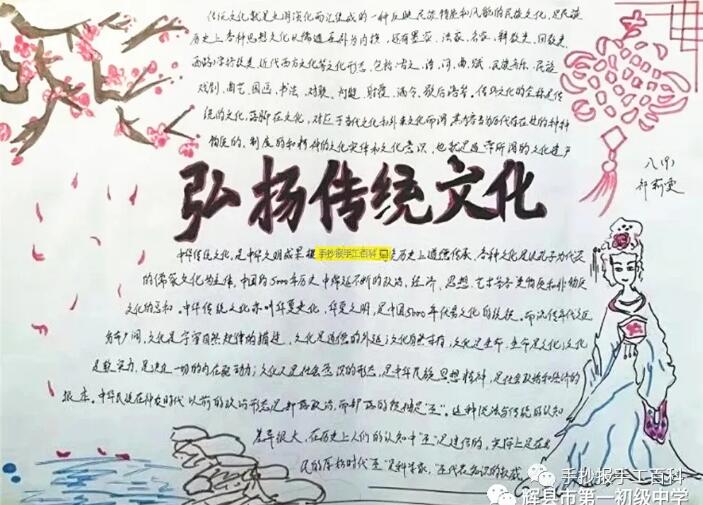 传统文化就是文明演化而汇集成的一种反映民族特质和风貌的民族文化,是民族
历史上各种思想文化
还有墨家、法家、名家、释教类、回教类、
西学格致类、近代西方文化等文化形态,包括:古文、诗、词、曲、赋、民族音乐、民族
戏剧、曲艺、国画、书法、对联、灯谜、射覆、酒令、歇后语等。传统文化的全称是传
统的文化,落脚在文化,对应于当代文化和外来文化而谓。其内容当为历代存在过的种种
物质的、制度的和精神的文化实体和文化意识。也就是通常所谓的文化遗产
八(9)
弘扬传统文化
中华传统文化,是中华文明成果
历史上道德传承、各种文化
以孔子为代表
的儒家文化为主体,中国约5000年历史中绵延不断的政治、经济、思想、艺术等各类物质和非物质
文化的总和。中华传统文化亦叫华夏文化,华夏文明,是中国5000年代表文化的统
文化是宇宙自然规律的描述,文化是道德的外延;文化自然本有,文化是生命,生命是文化;文化
是软实力,是决定一切的内在驱动力;文化又是社会意识的形态,是中华民族思想精神,是社会政治和经济的
根本。中华民族在仰韶时代以前的政治形态是部落政治,而部落的
是“巫”。这种说法与传统的认知
差异很大,在历史上人们的认知中“巫”是迷信的,实际上是在
民的原始时代“巫”是科学家,巫代表知识的权威
手抄报手工百科
手抄报手工百科
辉县市第一初级中学